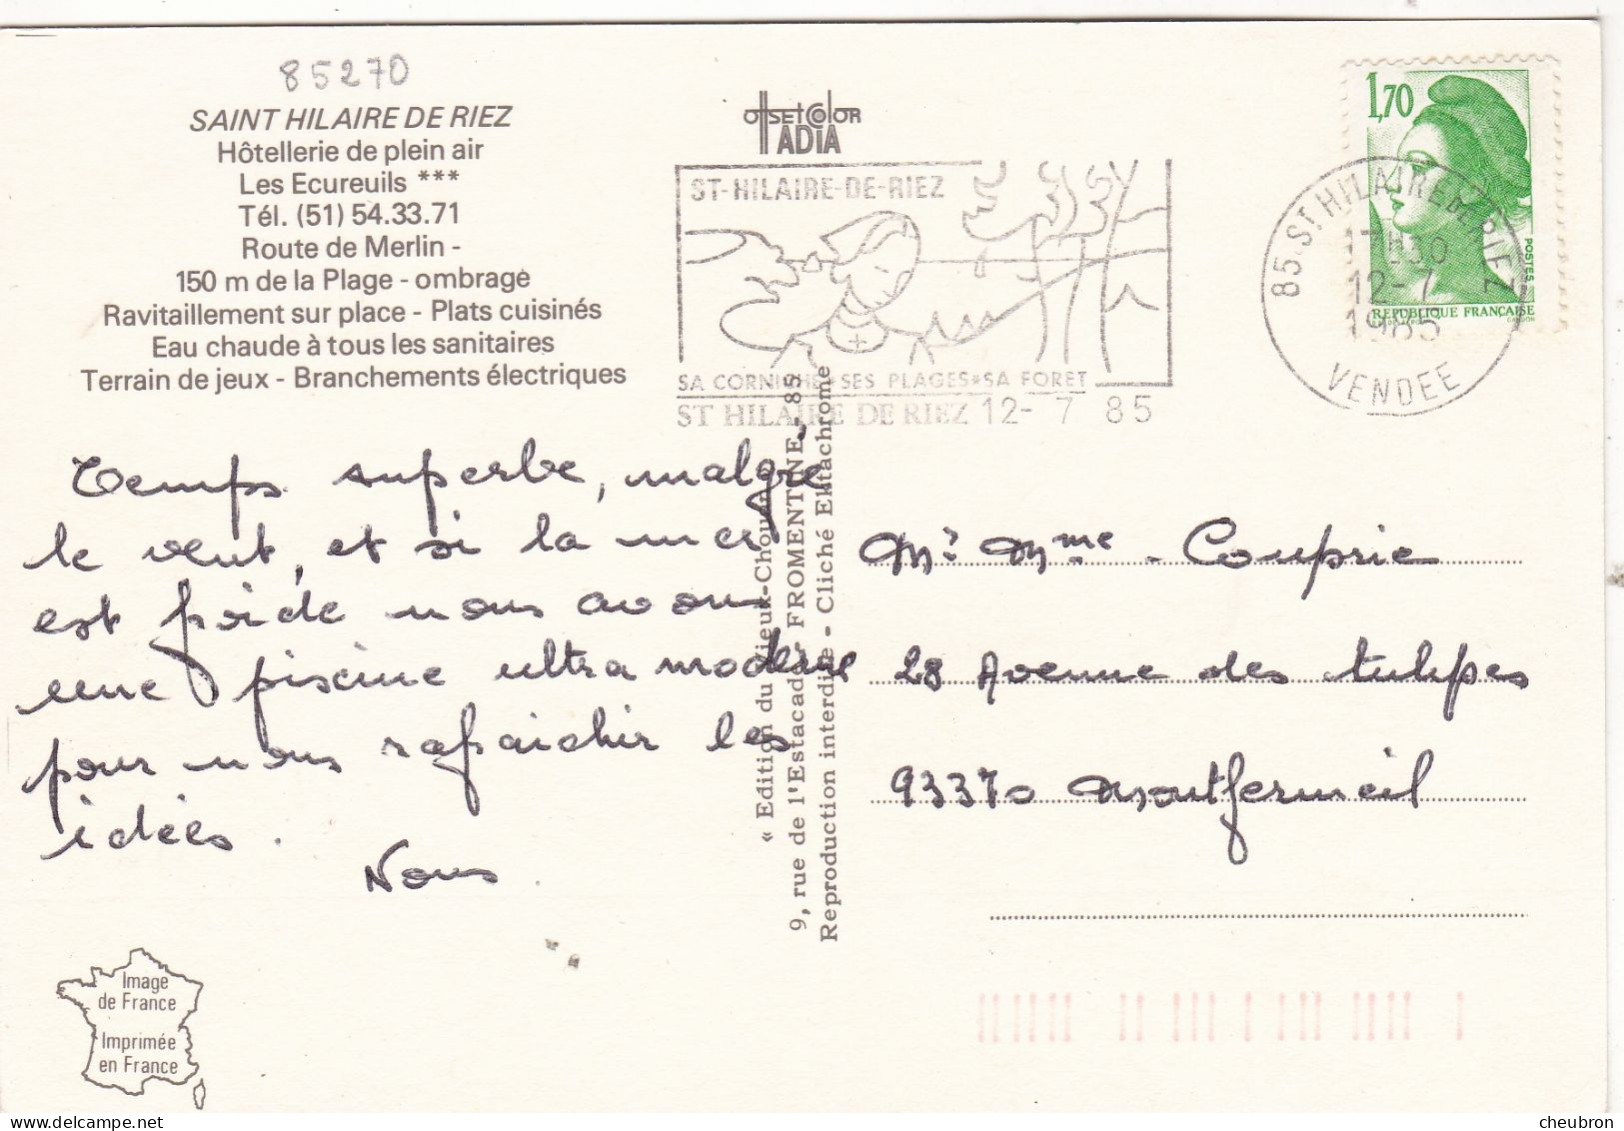 85270
SAINT HILAIRE DE RIEZ
Hôtellerie de plein air
Les Ecureuils ***
Tél. (51) 54.33.71
Route de Merlin -
150 m de la Plage - ombragé
Ravitaillement sur place - Plats cuisinés
Eau chaude à tous les sanitaires
Terrain de jeux - Branchements électriques
OffsetColor
ADIA
ST-HILAIRE-DE-RIEZ
SA CORNICHE*SES PLAGES*SA FORET
ST HILAIRE DE RIEZ 12- 7 85
85 ST HILAIRE DE RIEZ
17H30
12-7
1985
VENDEE
1,70
POSTES
REPUBLIQUE FRANÇAISE
Temps superbe, malgré
le vent, et si la mer
est froide nous avons
une piscine ultra moderne
pour nous rafraichir les
idées.
Nous.
« Edition du Vieux-Chouan »
9, rue de l'Estacade - FROMENTINE - 85
Reproduction interdite - Cliché Ektachrome
Mr Mme Couprie
28 Avenue des tulipes
93370 Montfermeil
Image
de France
Imprimée
en France
delcampe.net
cheubron